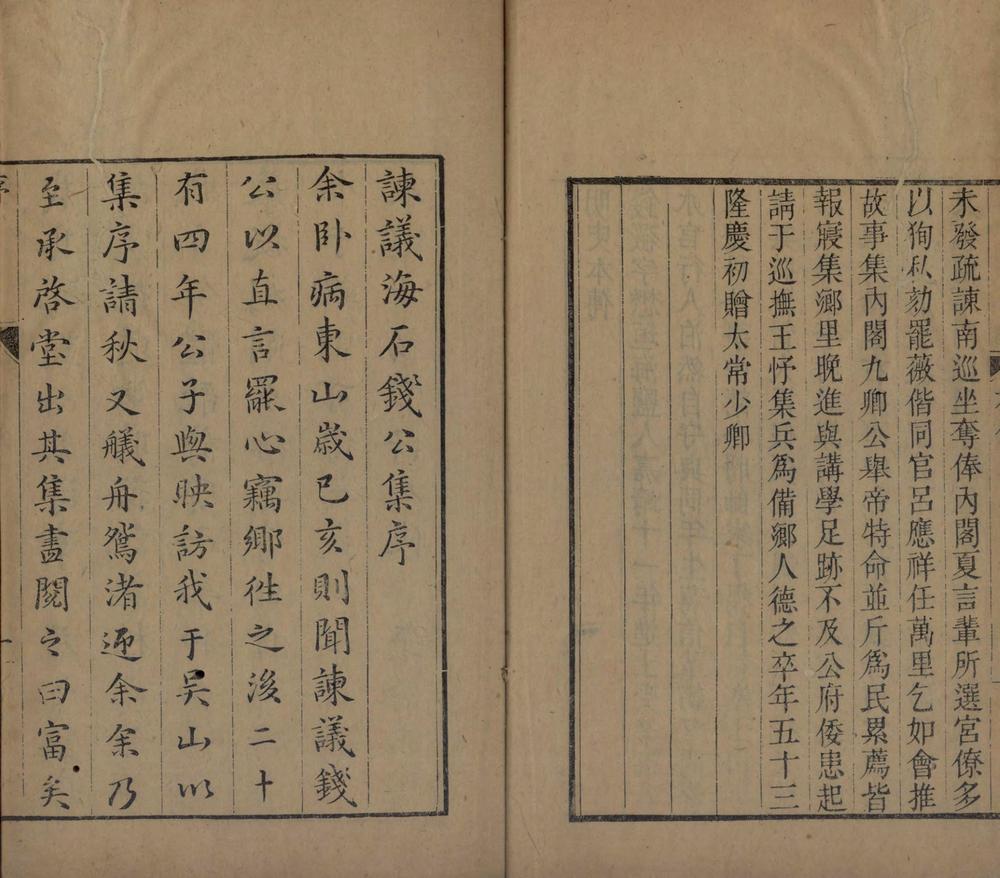 未發疏諫南巡坐奪俸內閣夏言輩所選宮僚多
以狥私劾罷薇偕同官呂應祥任萬里乞如會推
故事集內閣九卿公舉帝特命並斥爲民累薦皆
報寢集鄉里晚進與講學足跡不及公府倭患起
請于巡撫王忬集兵爲備鄉人德之卒年五十三
隆慶初贈太常少卿
諫議海石錢公集序
余卧病東山歲已亥則聞諫議錢
公以直言罷心竊鄉徃之後二十
有四年公子與映訪我于吳山以
集序請秋又艤舟鴛渚迎余余乃
至承啓堂出其集盡閱之曰富矣
序
一